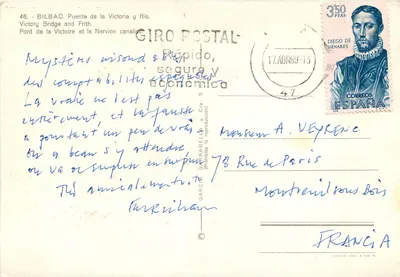 46. - BILBAO. Puente de la Victoria y Ría.
Victory Bridge and Frith.
Pont de la Victoire et le Nervion canalisé
GIRO POSTAL
Rápido,
seguro y
económico
17 ABR 69 - 13
47
3,50
PTAS
DIEGO DE
HENARES
CORREOS
ESPAÑA
Mystères insondables
des comptabilités espagnoles
La vraie n'est pas
entièrement, et la fausse
a pourtant un peu de vrai
on a beau s'y attendre,
on va de surprise en surprise
Très amicalement votre
Monsieur A. VEYRENC
78 Rue de Paris
Montreuil sous bois
FRANCIA
GARCIA GARRABELLA Y Cía.
prohibida la reproducción